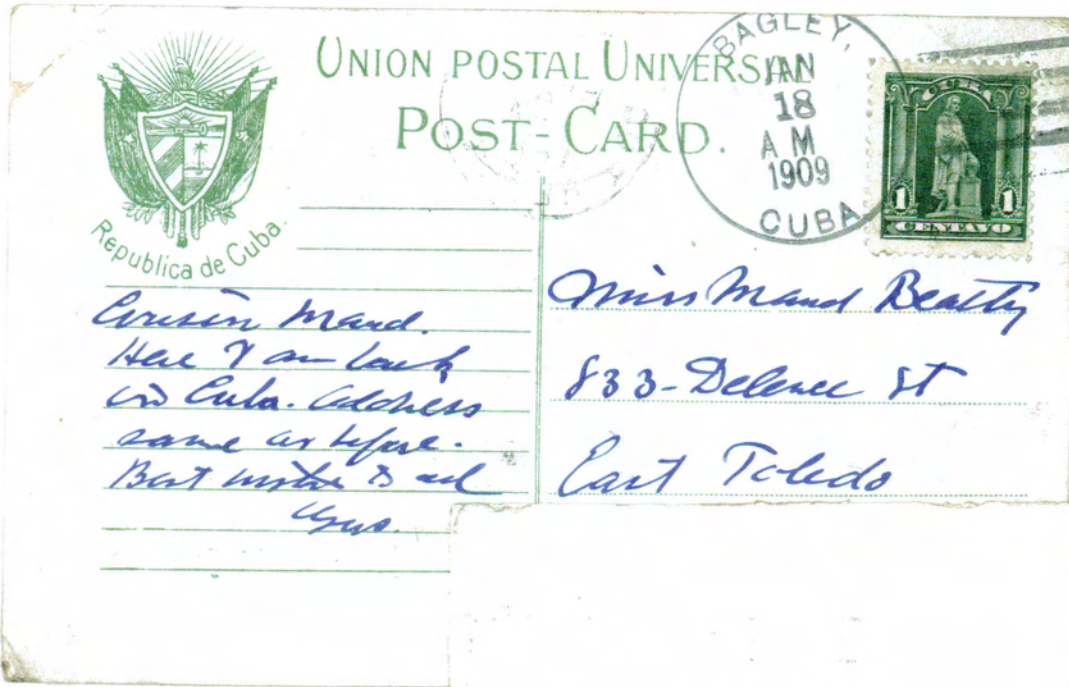 UNION POSTAL UNIVERSAL
POST-CARD.
Republica de Cuba.
BAGLEY,
JAN
18
A M
1909
CUBA
CUBA
1 1
CENTAVO
Cousin Maud.
Here I am back
in Cuba. Address
same as before.
Best wishes to all
Miss Maud Beatty
833- St
East Toledo